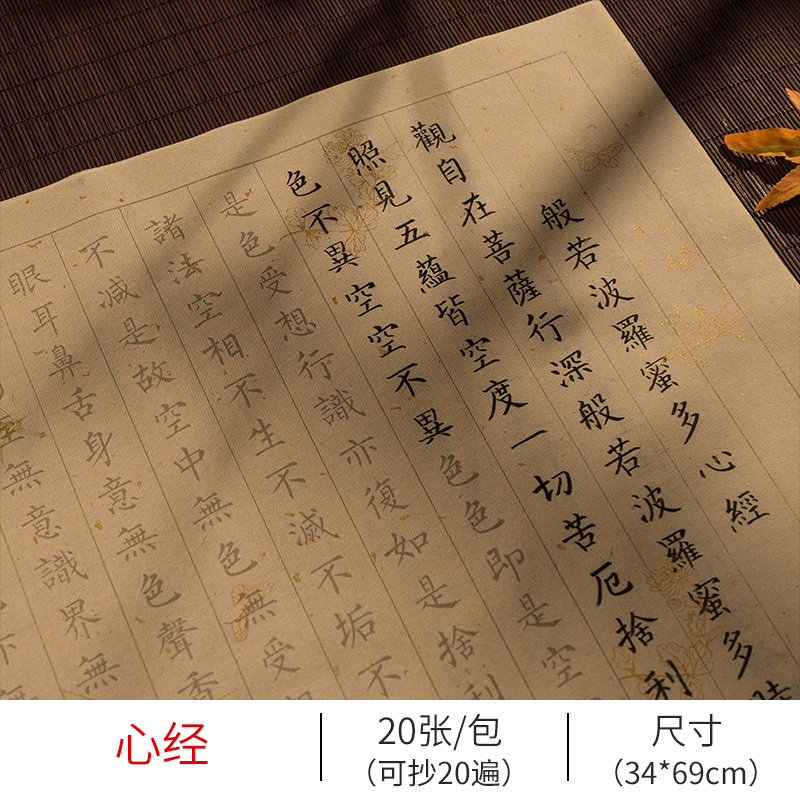 般若波羅蜜多心經
觀自在菩薩行深般若波羅蜜多
照見五蘊皆空度一切苦厄捨利
色不異空空不異色色即是空
是色受想行識亦復如是捨利
諸法空相不生不滅不垢不
不減是故空中無色無受
眼耳鼻舌身意無色聲香
無意識界無
心经
20张/包
（可抄20遍）
尺寸
（34*69cm）